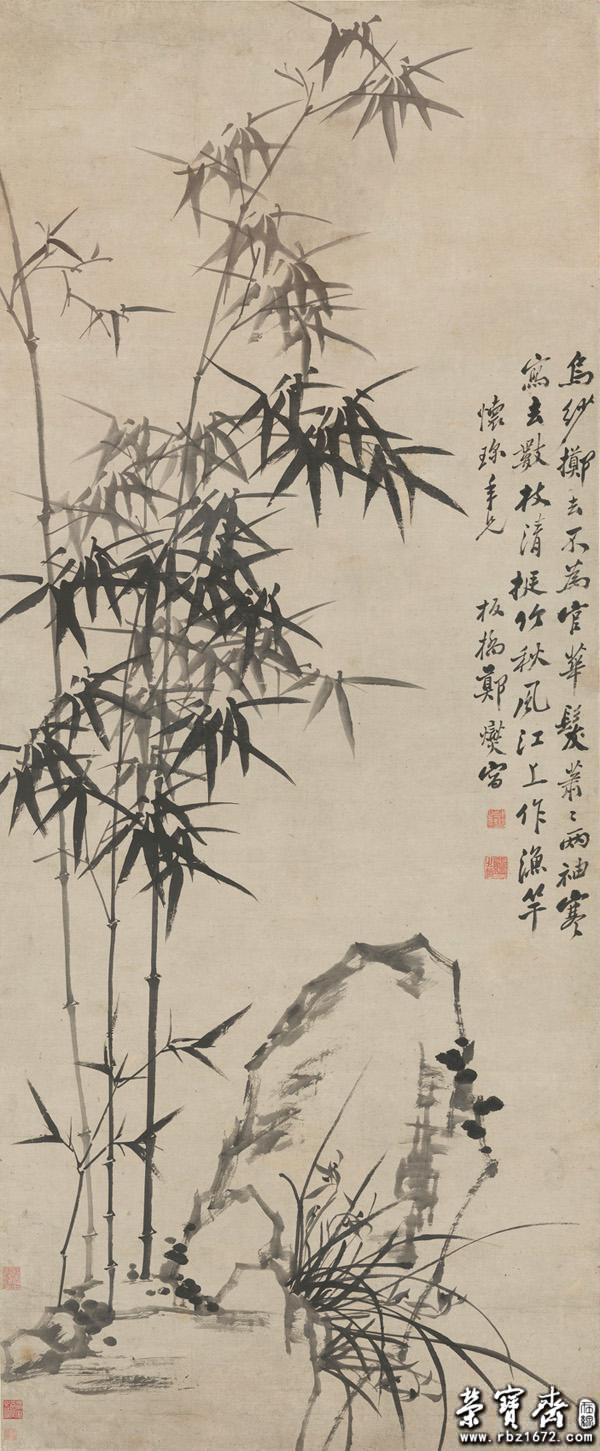 烏紗擲去不為官華髮蕭〻兩袖寒
寫去數枝清挺竹秋風江上作漁竿
懷年兄 板橋鄭燮寫
榮寶齋
www.rbz1672.com